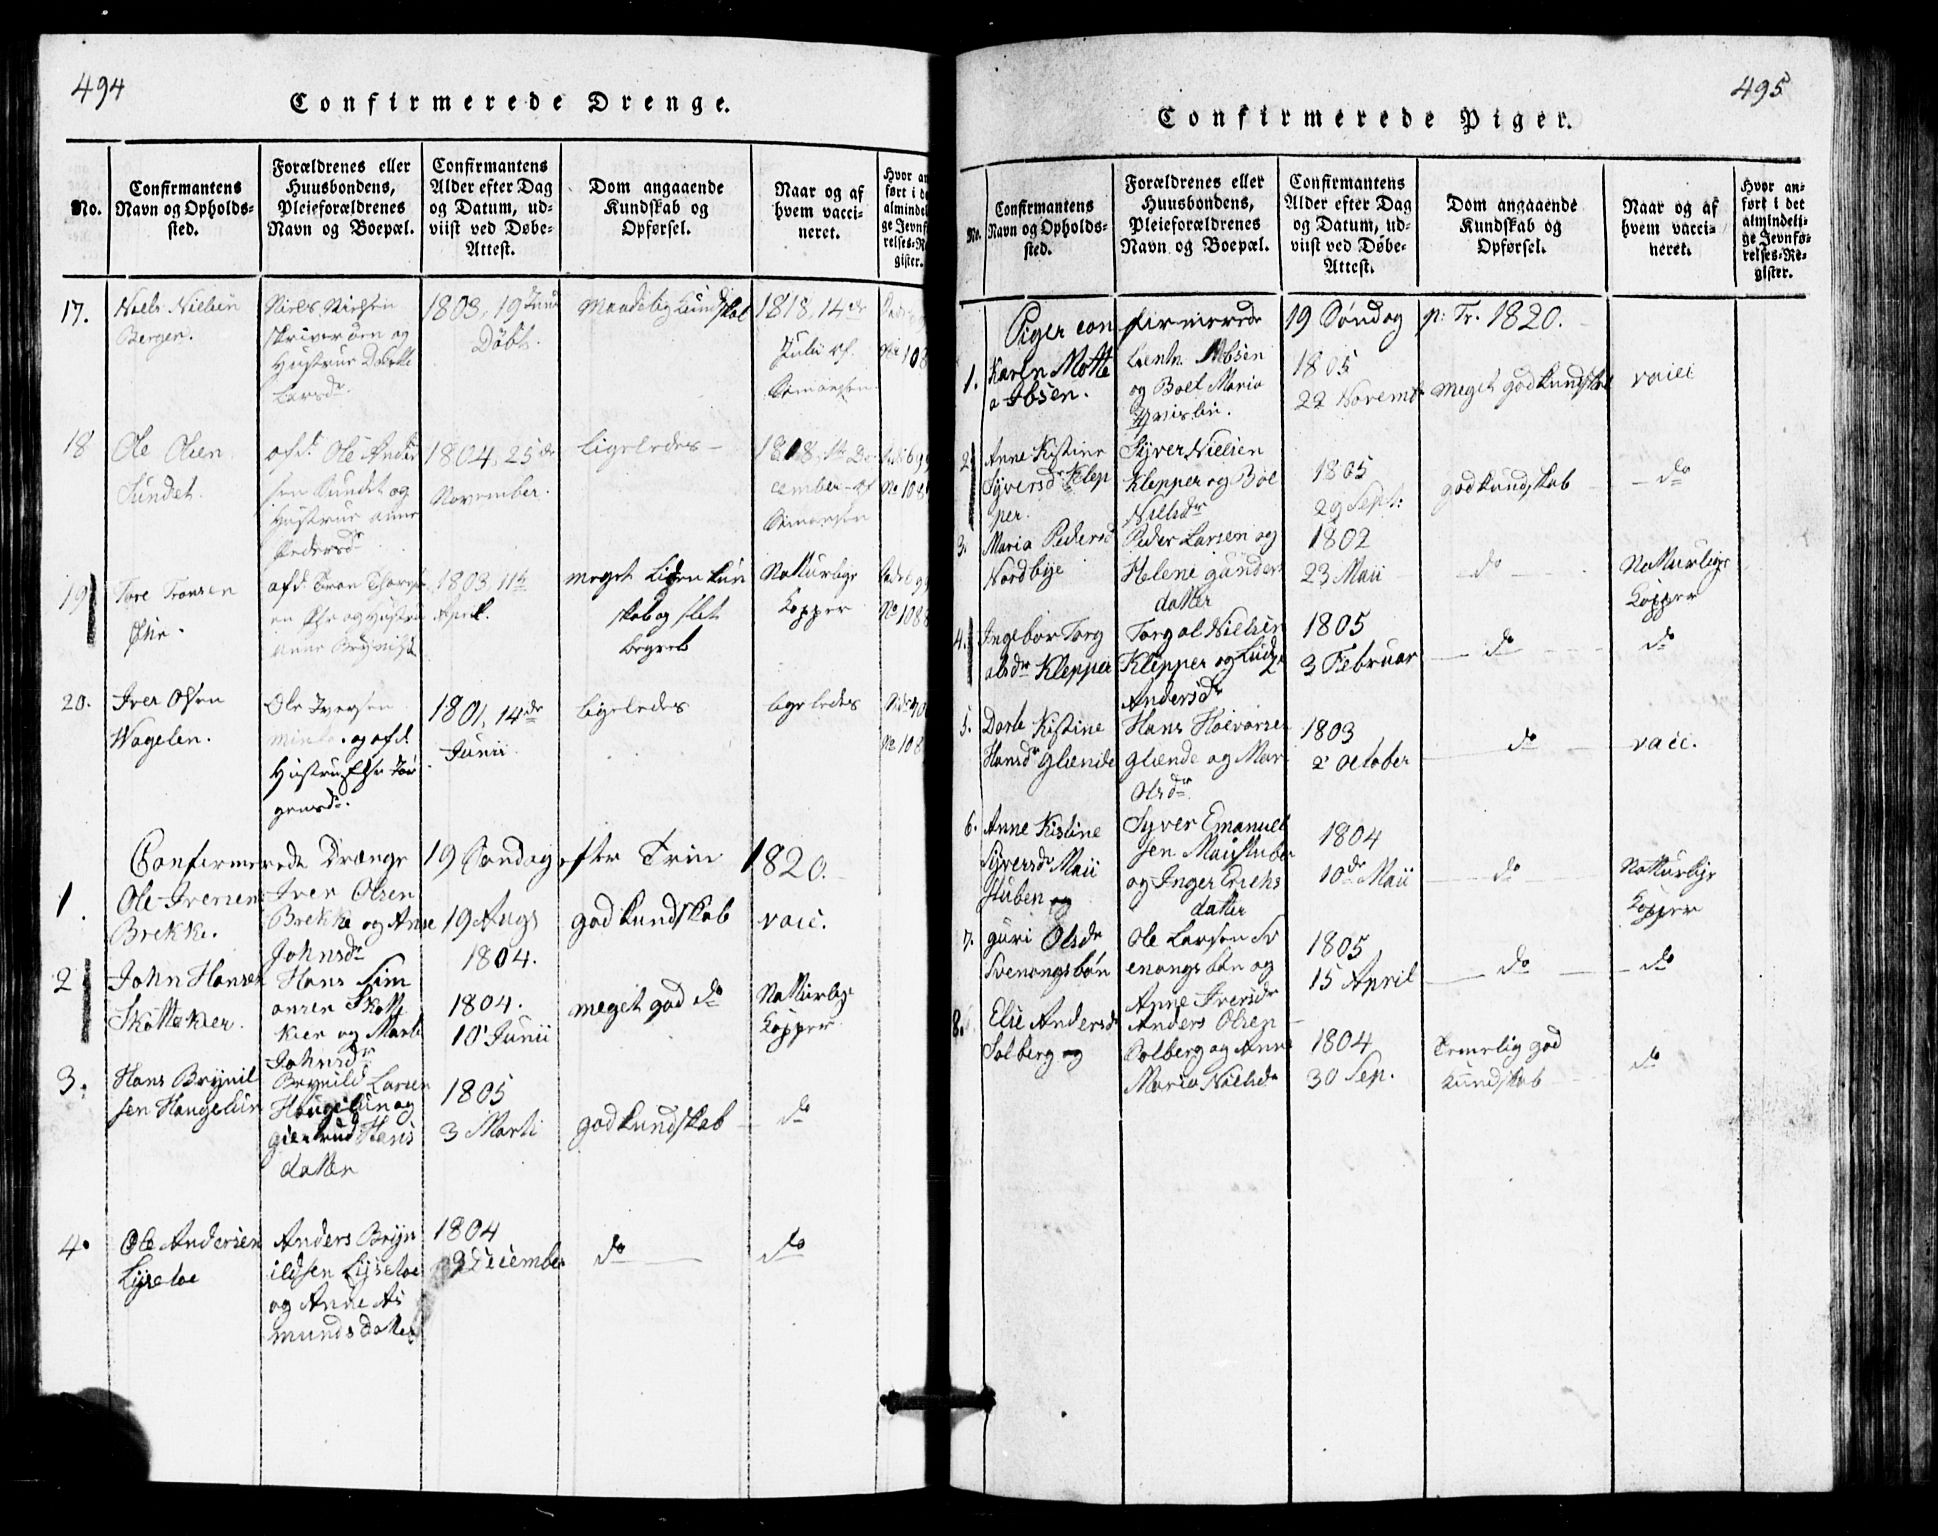 494
Confirmerede Drenge.
No.
Confirmantens
Navn og Opholds-
sted.
Forældrenes eller
Huusbondens,
Pleieforældrenes
Navn og Boepæl.
Confirmantens
Alder efter Dag
og Datum, ud-
viist ved Døbe-
Attest.
Dom angaaende
Kundskab og
Opførsel.
Naar og af
hvem vacci-
neret.
Hvor an
ført i de
almindel
ge Jevnf
relses-R
gister.
17.
Niels Nielsen
Bergen.
Niels Nielsen
og
Hustrue Dorthe
Larsdr
1803, 19 Junii
Døbt.
Maadelig Kundskab
1818, 14de
Julii af
Simonsen
No 108
18
Ole Olsen
Sundet.
afd. Ole Ander
sen Sundet og
Hustrue Anne
Pedersdr
1804, 25de
November.
ligeledes
1818, De
cember af
Simonsen
No 108
19
Tore Tronsen
afd. Tron
og Hustru
Anne
1803 11te
April.
meget liden Kun
skab og slet
begreb
Natturlige
Kopper
No 108
20.
Iver Olsen
Wagelen.
Ole Iversen
og afd.
Hustru Else Tor
gersdr.
1801, 14de
Junii
ligeledes
ligeledes
No 108
Confirmerede Drænge 19 Søndag efter Trin 1820.
1.
Ole Iversen
Brekke.
Iver Olsen
Brekke og Anne
Johnsdr
19 Augs
1804.
god Kundskab
vacc.
2
John Hansen
Skottekier.
Hans Sim
onsen Skotte
kier og Marte
Johnsdr
1804.
10 Junii
meget god do
Natturlige
Kopper
3.
Hans Brynil
sen Haugelun
Brynild Larsen
Haugelun og
Giertrud Hans
datter
1805
3 Marti
god kundskab
do
4.
Ole Andersen
Lysetoe
Anders Bryn
ildsen Lysetoe
og Anne As
mundsdatter
1804
December
do
do
495
Confirmerede Piger.
No.
Confirmantens
Navn og Opholds-
sted.
Forældrenes eller
Huusbondens,
Pleieforældrenes
Navn og Boepæl.
Confirmantens
Alder efter Dag
og Datum, ud-
viist ved Døbe-
Attest.
Dom angaaende
Kundskab og
Opførsel.
Naar og af
hvem vacci-
neret.
Hvor an-
ført i det
almindeli-
ge Jevnfø-
relses-Re-
gister.
Piger confirmerede 19 Søndag p: Tr. 1820.
1.
Karen Motte
a Ibsen.
Leutn. Ibsen
og Boel Maria
1805
22 Novemr
meget god kundskab
vacc
2
Anne Kistine
Syversdr Klep
per.
Syver Nielsen
Klepper og Boel
Nielsdr
1805
29 Sept:
god kundskab
do
3.
Maria Pedersd
Nordbye
Peder Larsen og
Helene Gunder
datter
1802
23 Maii
do
Natturlige
Kopper
4.
Ingebor Torg
alsdr Klepper
Torgal Nielsen
Klepper og
Andersdr
1805
3 Februar
do
do
5.
Dorte Kistine
Hansdr Glende
Hans Haavorsen
Glænde og Mari
Olsdr
1803
2 October
do
vacc.
6.
Anne Kistine
Syversdr Maii
stuben og
Syver Emanuel
sen Maistuben
og Inger Erichs
datter
1804
10de Maii
do
Natturlige
Kopper
7.
Guri Olsdr
Svenongsbøn
Ole Larsen Sv
enongsbøn og
Anne Iversdr
1805
15 April
do
do
8.
Else Andersdr
Solberg og
Anders Olsen
Solberg og Anne
Maria Nielsdr
1804
30 Sep.
Temelig god
kundskab
do